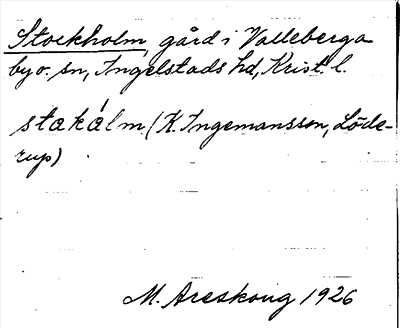 Stockholm, gård i Valleberga
by o. sn, Ingelstads hd, Krist. l.
stakálm (K. Ingemansson, Löde-
rup)
M. Areskoug 1926